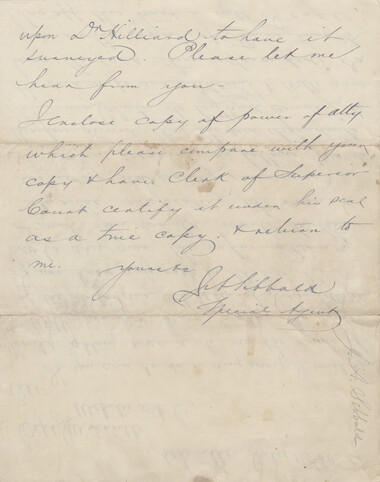 upon Dr Hilliard to have it
surveyed. Please let me
hear from you -
I enclose copy of power of atty
which please compare with your
copy & have Clerk of Superior
Court certify it under his seal
as a true copy. & return to
me. yours &c
Sibbald
Special Agent
J. A. Sibbald